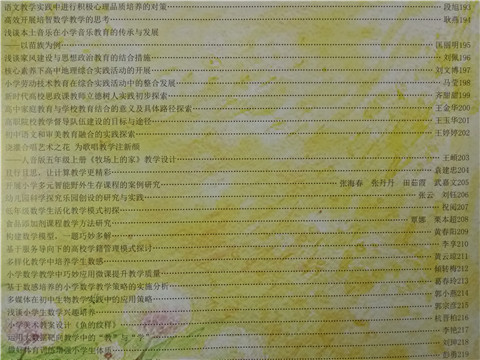 语文教学实践中进行积极心理品质培养的对策 段旭193
高效开展培智数学教学的思考 耿燕194
浅谈本土音乐在小学音乐教育的传承与发展
——以苗族为例 匡丽明195
浅谈家风建设与思想政治教育的结合措施 刘佩196
核心素养下高中地理综合实践活动的开展 刘文博197
小学劳动技术教育在综合实践活动中的整合发展 马莹198
新时代高校思政课教师立德树人实践初步探索 齐甜甜199
高中家庭教育与学校教育结合的意义及具体路径探索 王金华200
高职院校教学督导队伍建设的目标与途径 王玉华201
初中语文和审美教育融合的实践探索 王婷婷202
浇灌合唱艺术之花 为歌唱教学注新颜
——人音版五年级上册《牧场上的家》教学设计 王顿203
让计算教学更精彩 袁建忠204
开展小学多元智能野外生存课程的案例研究 张海春 张丹丹 田茹霞 武嘉文205
幼儿园科学探究乐园创设的研究与实践 张云 刘钰206
低年级数学生活化教学模式初探 祝闻207
食品添加剂课程教学方法研究 覃娜 栗本超208
构建数学模型，一题巧妙多解 黄春阳209
基于服务导向下的高校学籍管理模式探讨 李享210
多样化教学中培养学生数感 黄云琼211
小学数学教学中巧妙应用微课提升教学质量 212
基于数感培养的小学数学教学策略的实施分析 213
多媒体在初中生物教学实践中的应用策略 郭小燕214
浅谈小学生数学兴趣培养 郭宗彦215
小学美术教案设计《鱼的纹样》 杭晋柏216
李艳217
刘坤218
彭勇219